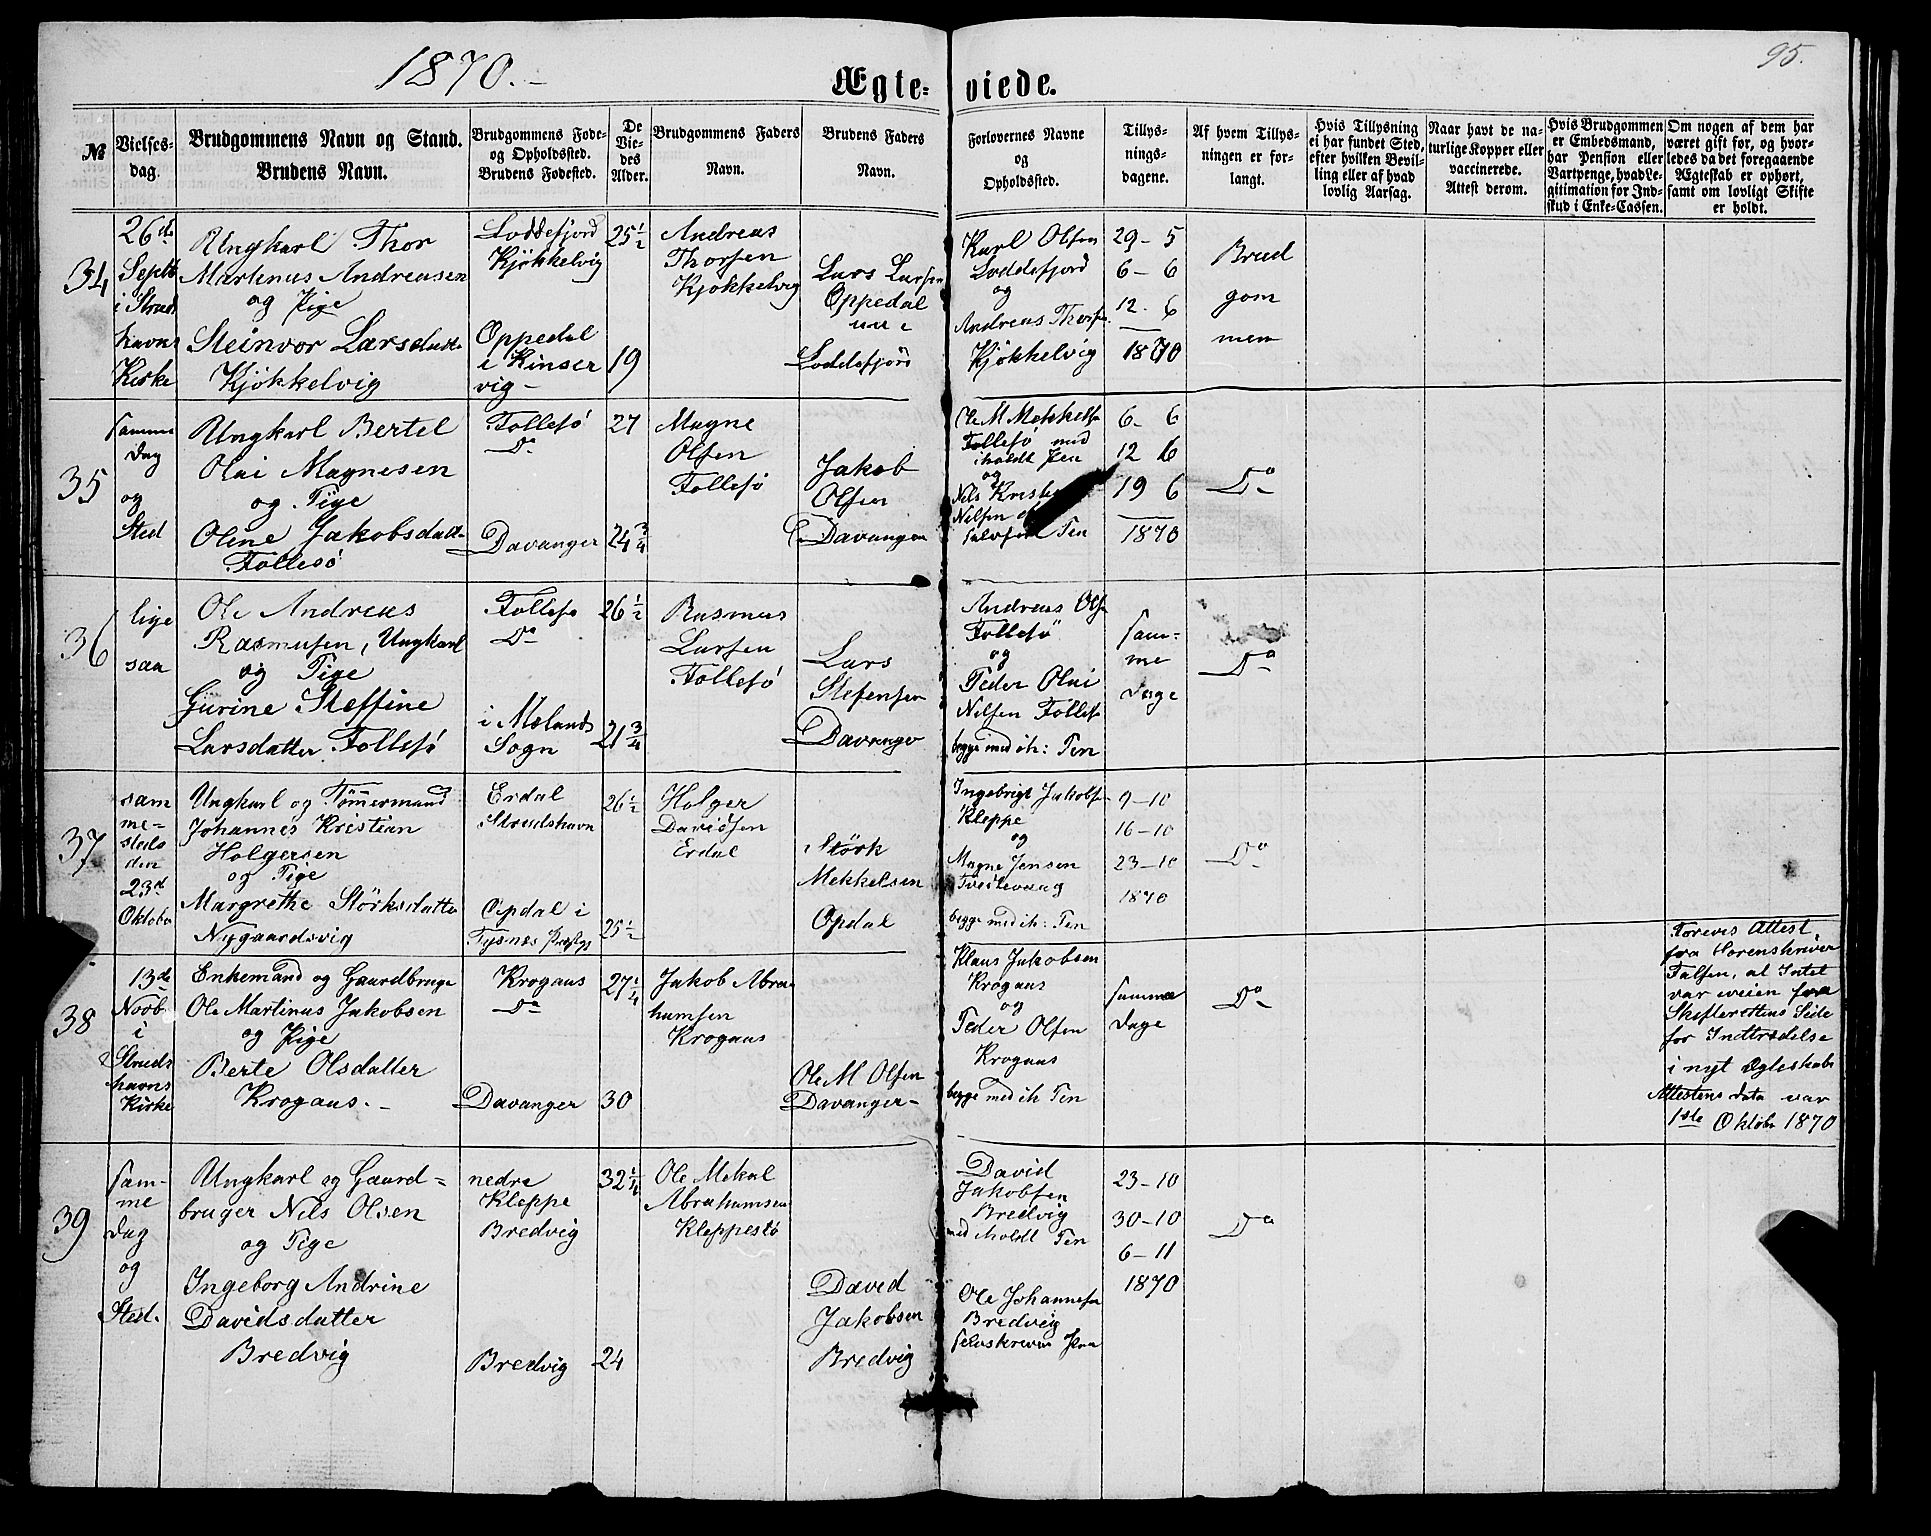 1870.-
Ægte-
viede.
95.
№
Vielses-
dag.
Brudgommens Navn og Stand.
Brudens Navn.
Brudgommens Føde-
og Opholdssted.
Brudens Fødested.
De
Vie-
des
Alder.
Brudgommens Faders
Navn.
Brudens Faders
Navn.
Forlovernes Navne
og
Opholdssted.
Tillys-
nings-
dagene.
Af hvem Tillys-
ningen er for-
langt.
Hvis Tillysning
ei har fundet Sted,
efter hvilken Bevil-
ling eller af hvad
lovlig Aarsag.
Naar havt de na-
turlige Kopper eller
vaccinerede.
Attest derom.
Hvis Brudgommen
er Embedsmand,
har Pension eller
Vartpenge, hvad Le-
gitimation for Ind-
skud i Enke-Cassen.
Om nogen af dem har
været gift før, og hvor-
ledes da det foregaaende
Ægteskab er ophørt,
samt om lovligt Skifte
er holdt.
34
26de
Septb
i Strud
havns
Kirke
Ungkarl Thor
Martinus Andreasen
og Pige
Steinvor Larsdatt
Kjøkkelvig
Loddefjord
Kjøkkelvig
Oppedal
i Kinser
vig-
25½
19
Andreas
Thorsen
Kjøkkelvig
Lars Larsen
Oppedal
Loddefjord
Karl Olsen
Loddefjord
og
Andreas Thorsen
Kjøkkelvig
29-5
6-6
12-6
1870
Brud
gom
men
35
samme
Dag
og
Sted
Ungkarl Bertel
Olai Magnesen
og Pige
Oline Jakobsdatt
Follesø
Follesø
Do
Davanger
27
24¾
Magne
Olsen
Follesø
Jakob
Olsen
Davanger
Ole M Mekkelsen
Follesø med
iholdt Pen
og
Nils
Nilsen
Pen
6-6
12 6
19 6
1870
Do
36
lige
saa
Ole Andreas
Rasmusen, Ungkarl
og Pige
Gurine Steffine
Larsdatter Follesø
Follesø
Do
i Mælands
Sogn
26½
21¾
Rasmus
Larsen
Follesø
Lars
Stefensen
Davanger
Andreas Olsen
Follesø
og
Peder Olai
Nilsen Follesø
begge med ih: Pen
sam-
me
Dage
Do
37
sam
me-
steds
den
23de
Oktober
Ungkarl og Tømmermand
Johannes Kristian
Holgersen
og Pige
Margrethe Størksdatter
Nygaardsvig
Erdal
Strudshavn
Opdal i
Tysnes Præstgj
26½
25½
Holger
Davidsen
Erdal
Størk
Mekkelsen
Opdal
Ingebrigt Jakobsen
Kleppe
og
Magne Jensen
Tveitevaag
begge med ih: Pen
9-10
16-10
23-10
1870
Do
38
13de
Novb
i
Struds
havns
Kirke
Enkemand og Gaardbruger
Ole Martinus Jakobsen
og Pige
Berte Olsdatter
Krogaas.-
Krogaas
Do
Davanger
27¼
30
Jakob Abra
hamsen
Krogaas
Ole M Olsen
Davanger-
Klaus Jakobsen
Krogaas
og
Peder Olsen
Krogaas
begge med ih Pen
samme
Dage
Do
Forevis Attest
fra Sorenskriver
Falsen, at Intet
var iveien fra
Skifterettens Side
for Indtrædelse
i nyt Ægteskab
Attestens data var
1ste Oktober 1870
39
sam-
me
Dag
og
Sted.
Ungkarl og Gaard-
bruger Nils Olsen
og Pige
Ingeborg Andrine
Davidsdatter
Bredvig
nedre
Kleppe
Bredvig
Bredvig
32¼
24
Ole Mekal
Abrahamsen
Kleppestø
David
Jakobsen
Bredvig
David
Jakobsen
Bredvig
med iholdt Pen
Ole Johannesen
Bredvig
23-10
30-10
6-11
1870
Do